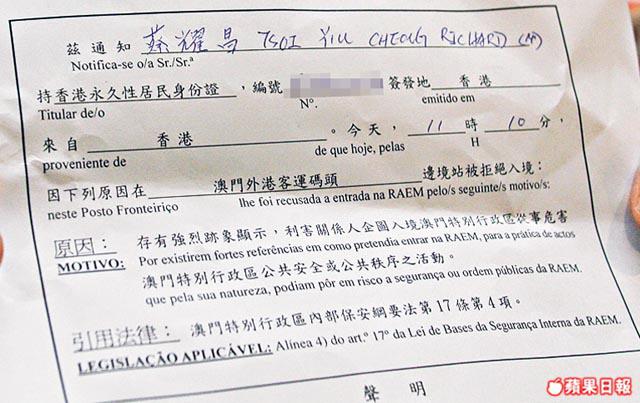 茲通知 蔡耀昌 TSOI YIU CHEONG RICHARD (M)
Notifica-se o/a Sr./Sr.ª
持香港永久性居民身份證，編號 簽發地 香港
Titular de/o N°. emitido em
來自 香港 。今天， 11 時 10 分，
proveniente de de que hoje, pelas H
因下列原因在 澳門外港客運碼頭 邊境站被拒絕入境：
neste Posto Fronteiriço lhe foi recusada a entrada na RAEM pelo/s seguinte/s motivo/s:
原因： 存有強烈跡象顯示，利害關係人企圖入境澳門特別行政區從事危害
MOTIVO: Por existirem fortes referências em como pretendia entrar na RAEM, para a prática de actos
澳門特別行政區公共安全或公共秩序之活動。
que pela sua natureza, podiam pôr em risco a segurança ou ordem públicas da RAEM.
引用法律： 澳門特別行政區內部保安綱要法第17條第4項。
LEGISLAÇÃO APLICÁVEL: Alínea 4) do art.º 17º da Lei de Bases da Segurança Interna da RAEM.
聲明
蘋果日報